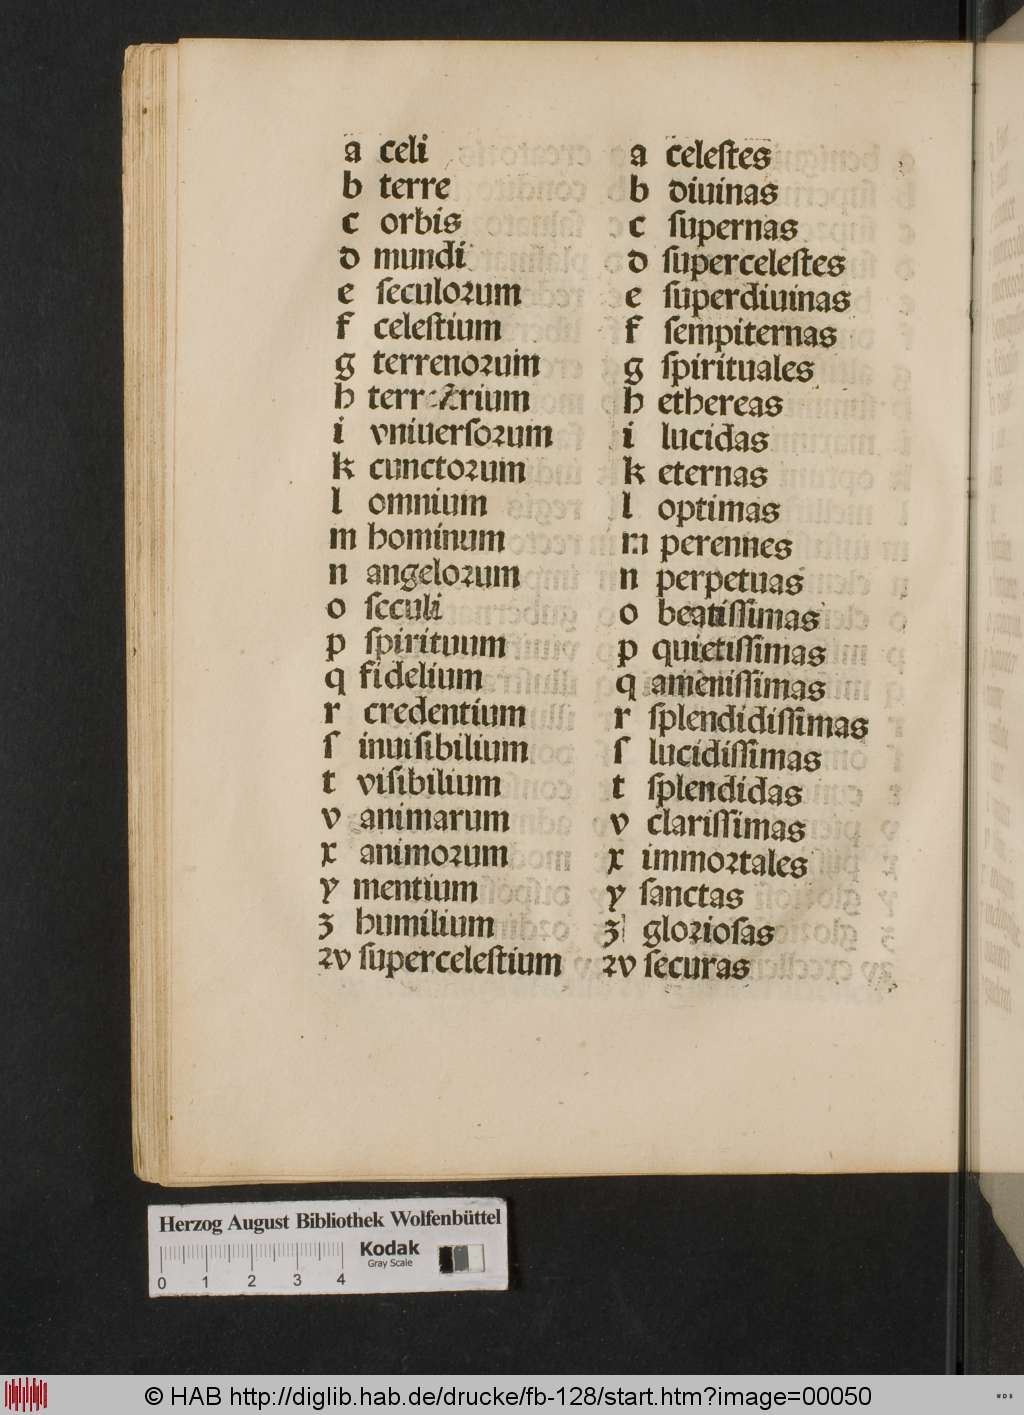 a celi
b terre
c orbis
d mundi
e ſeculoꝛum
f celeſtium
g terrenoꝛum
h terreſtrium
i vniuerſoꝛum
k cunctoꝛum
l omnium
m hominum
n angeloꝛum
o ſeculi
p ſpirituum
q fidelium
r credentium
ſ inuiſibilium
t viſibilium
v animarum
x animoꝛum
y mentium
ȝ humilium
ꝛv ſuperceleſtium
a celeſtes
b diuinas
c ſupernas
d ſuperceleſtes
e ſuperdiuinas
f ſempiternas
g ſpirituales
h ethereas
i lucidas
k eternas
l optimas
m perennes
n perpetuas
o beatiſſimas
p quietiſſimas
q ameniſſimas
r ſplendidiſſimas
ſ lucidiſſimas
t ſplendidas
v clariſſimas
x immoꝛtales
y ſanctas
ȝ gloꝛioſas
ꝛv ſecuras
Herzog August Bibliothek Wolfenbüttel
Kodak
Gray Scale
0 1 2 3 4
© HAB http://diglib.hab.de/drucke/fb-128/start.htm?image=00050